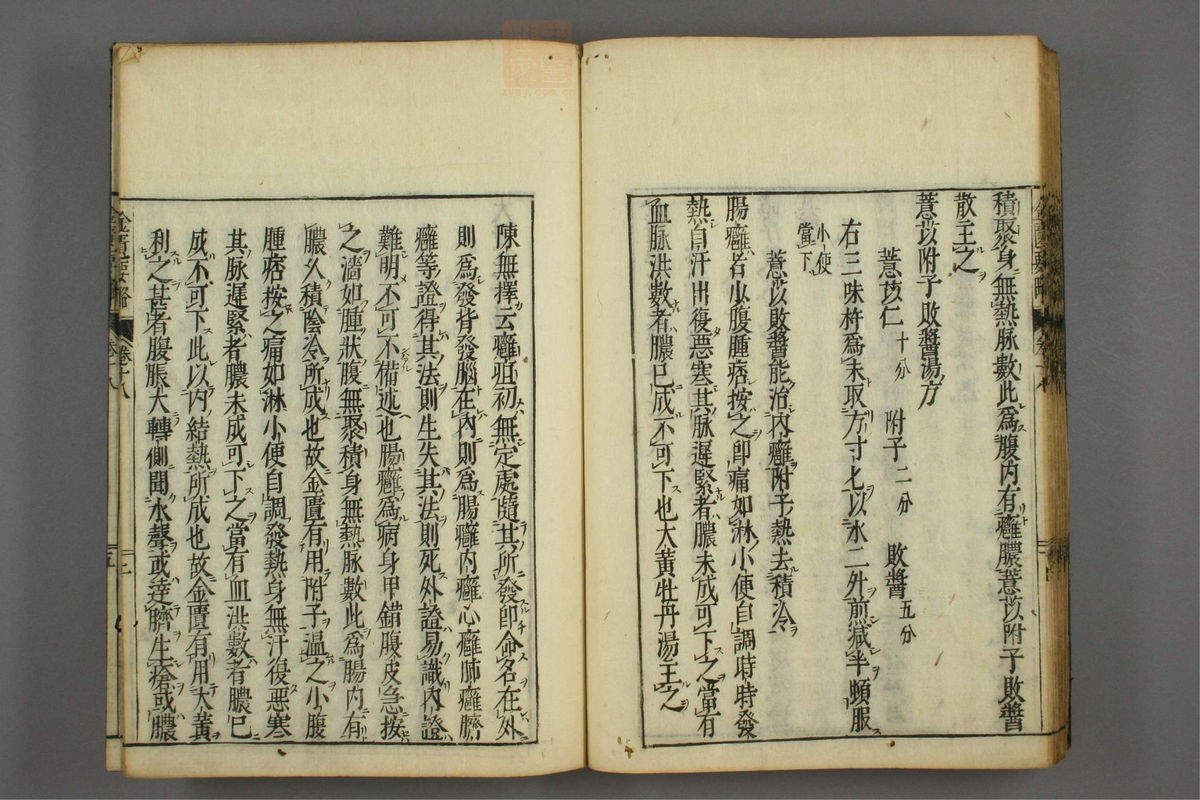 積聚身無熱脉數此爲腹内有癰膿薏苡附子敗醬
散主之
薏苡附子敗醬湯方
薏苡仁十分 附子二分 敗醬五分
右三味杵爲末取方寸匕以水二升煎減半頓服
小便當下
薏苡敗醬能治内癰附子熱去積冷
腸癰者小腹腫痞按之即痛如淋小便自調時時發
熱自汗出復惡寒其脉遲緊者膿未成可下之當有
血脉洪數者膿已成不可下也大黄牡丹湯主之
陳無擇云癰疽初無定處隨其所發即命名在外
則爲發背發腦在内則爲腸癰内癰心癰肺癰臍
癰等證得其法則生失其法則死外證易識内證
難明不可不備述也腸癰爲病身甲錯腹皮急按
之濡如腫狀腹無聚積身無熱脉數此爲腸内有
膿久積陰冷所成也故金匱有用附子温之小腹
腫痞按之痛如淋小便自調發熱身無汗復惡寒
其脉遲緊者膿未成可下之當有血洪數者膿已
成不可下此以内結熱所成也故金匱有用大黄
利之甚者腹脹大轉側聞水聲或遶臍生瘡或膿
金匱要略 卷十八